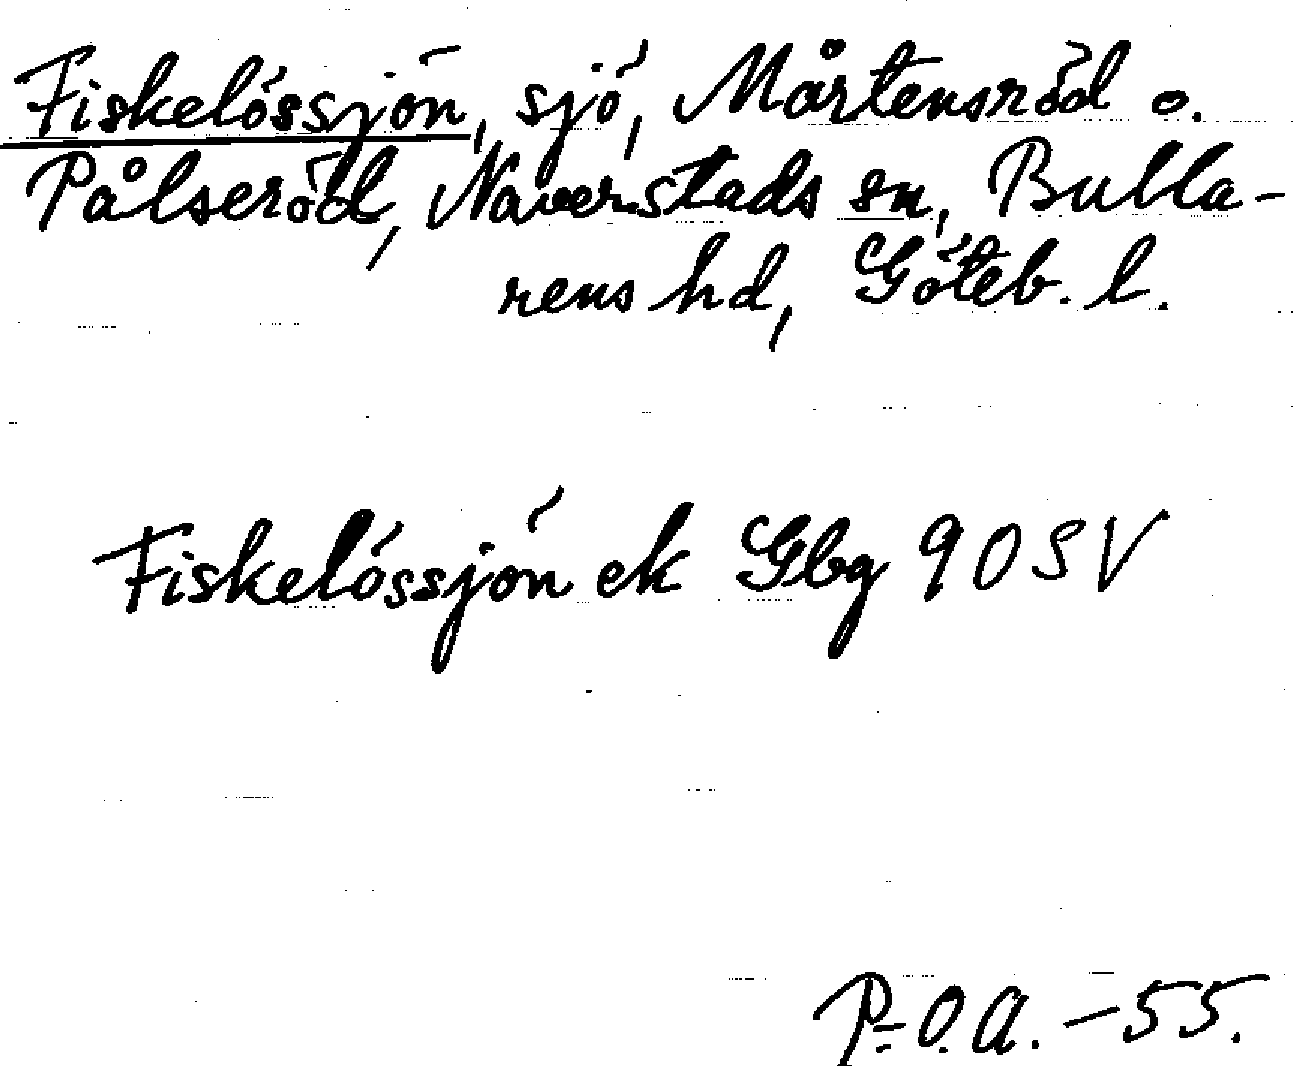 Fiskelössjön, sjö, Mårtensröd o.
Pålseröd, Naverstads sn, Bulla-
rens hd, Göteb. l.
Fiskelössjön ek Gbg 90 SV
P.-O.A. -55.